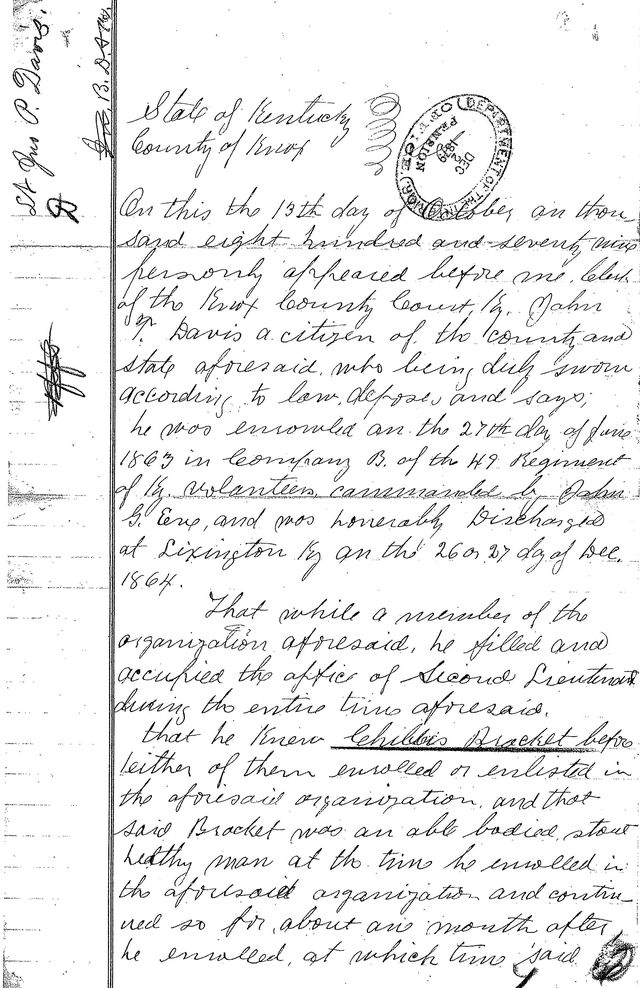 Lt Jno P. Davis.
B. D.
State of Kentucky
County of Knox
DEPARTMENT OF THE INTERIOR
PENSION OFFICE
DEC
1879
On this the 13th day of October, an thou
sand eight hundred and seventy nine
personly appeared before me, Clerk
of the Knox County Court, Ky. John
P. Davis a citizen of the county and
state aforesaid, who being duly sworn
according to law, deposes and says;
he was enrowled an the 27th day of June
1863 in Company B. of the 49 Regiment
of Ky. volunteers, cammanded by John
G. Eve, and was honerably Discharged
at Lixington Ky an the 26 or 27 day of Dec.
1864.
That while a member of the
organization aforesaid, he filled and
accupied the office of Second Lieutenant
during the entire time aforesaid.
that he Knew Bracket before
either of them enrowled or enlisted in
the aforesaid organization, and that
said Bracket was an able bodied, stout
helthy man at the time he enrolled in
the aforesaid organization and contin-
ued so for, about one month after
he enrolled, at which time said